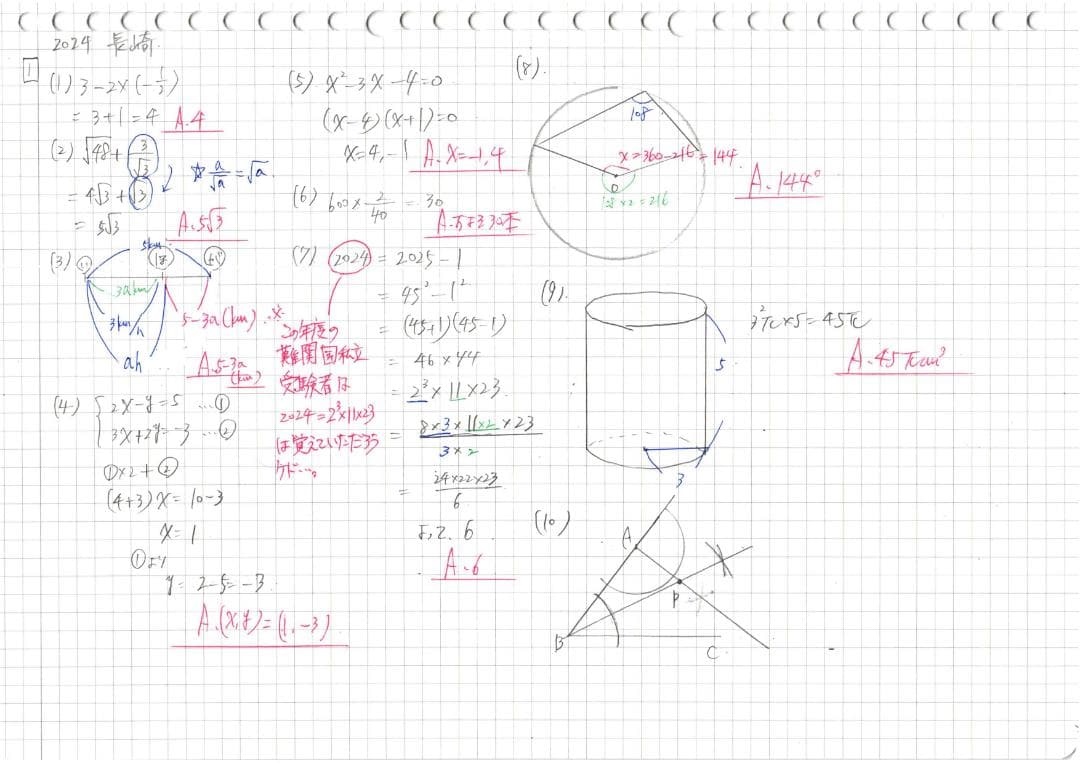 2024 長崎
1
(1) 3-2×(-1/2)
= 3+1=4 A.4
(2) √48+3/√3
☆ a/√a=√a
= 4√3+√3
= 5√3
A.5√3
(3)
5km
3akm
3km/h
ah
5-3a(km)
A.5-3a
(km)
(4) { 2x-y=5 …①
3x+2y=-3 …②
①×2+②
(4+3)x=10-3
x=1
①より
y=2-5=-3
A.(x,y)=(1,-3)
(5) x²-3x-4=0
(x-4)(x+1)=0
x=4,-1 A.x=-1,4
(6) 600×2/40=30
A.およそ30本
(7) 2024=2025-1
=45²-1²
=(45+1)(45-1)
=46×44
=2³×11×23
=8×3×11×2×23/3×2
=24×22×23/6
よって 6
A.6
※
この年度の
難関国私立
受験者は
2024=2³×11×23
は覚えていただろう
ケド…。
(8)
108
x=360-216=144
O
108×2=216
A.144°
(9)
3²π×5=45π
A.45πcm³
5
3
(10)
A
P
B
C